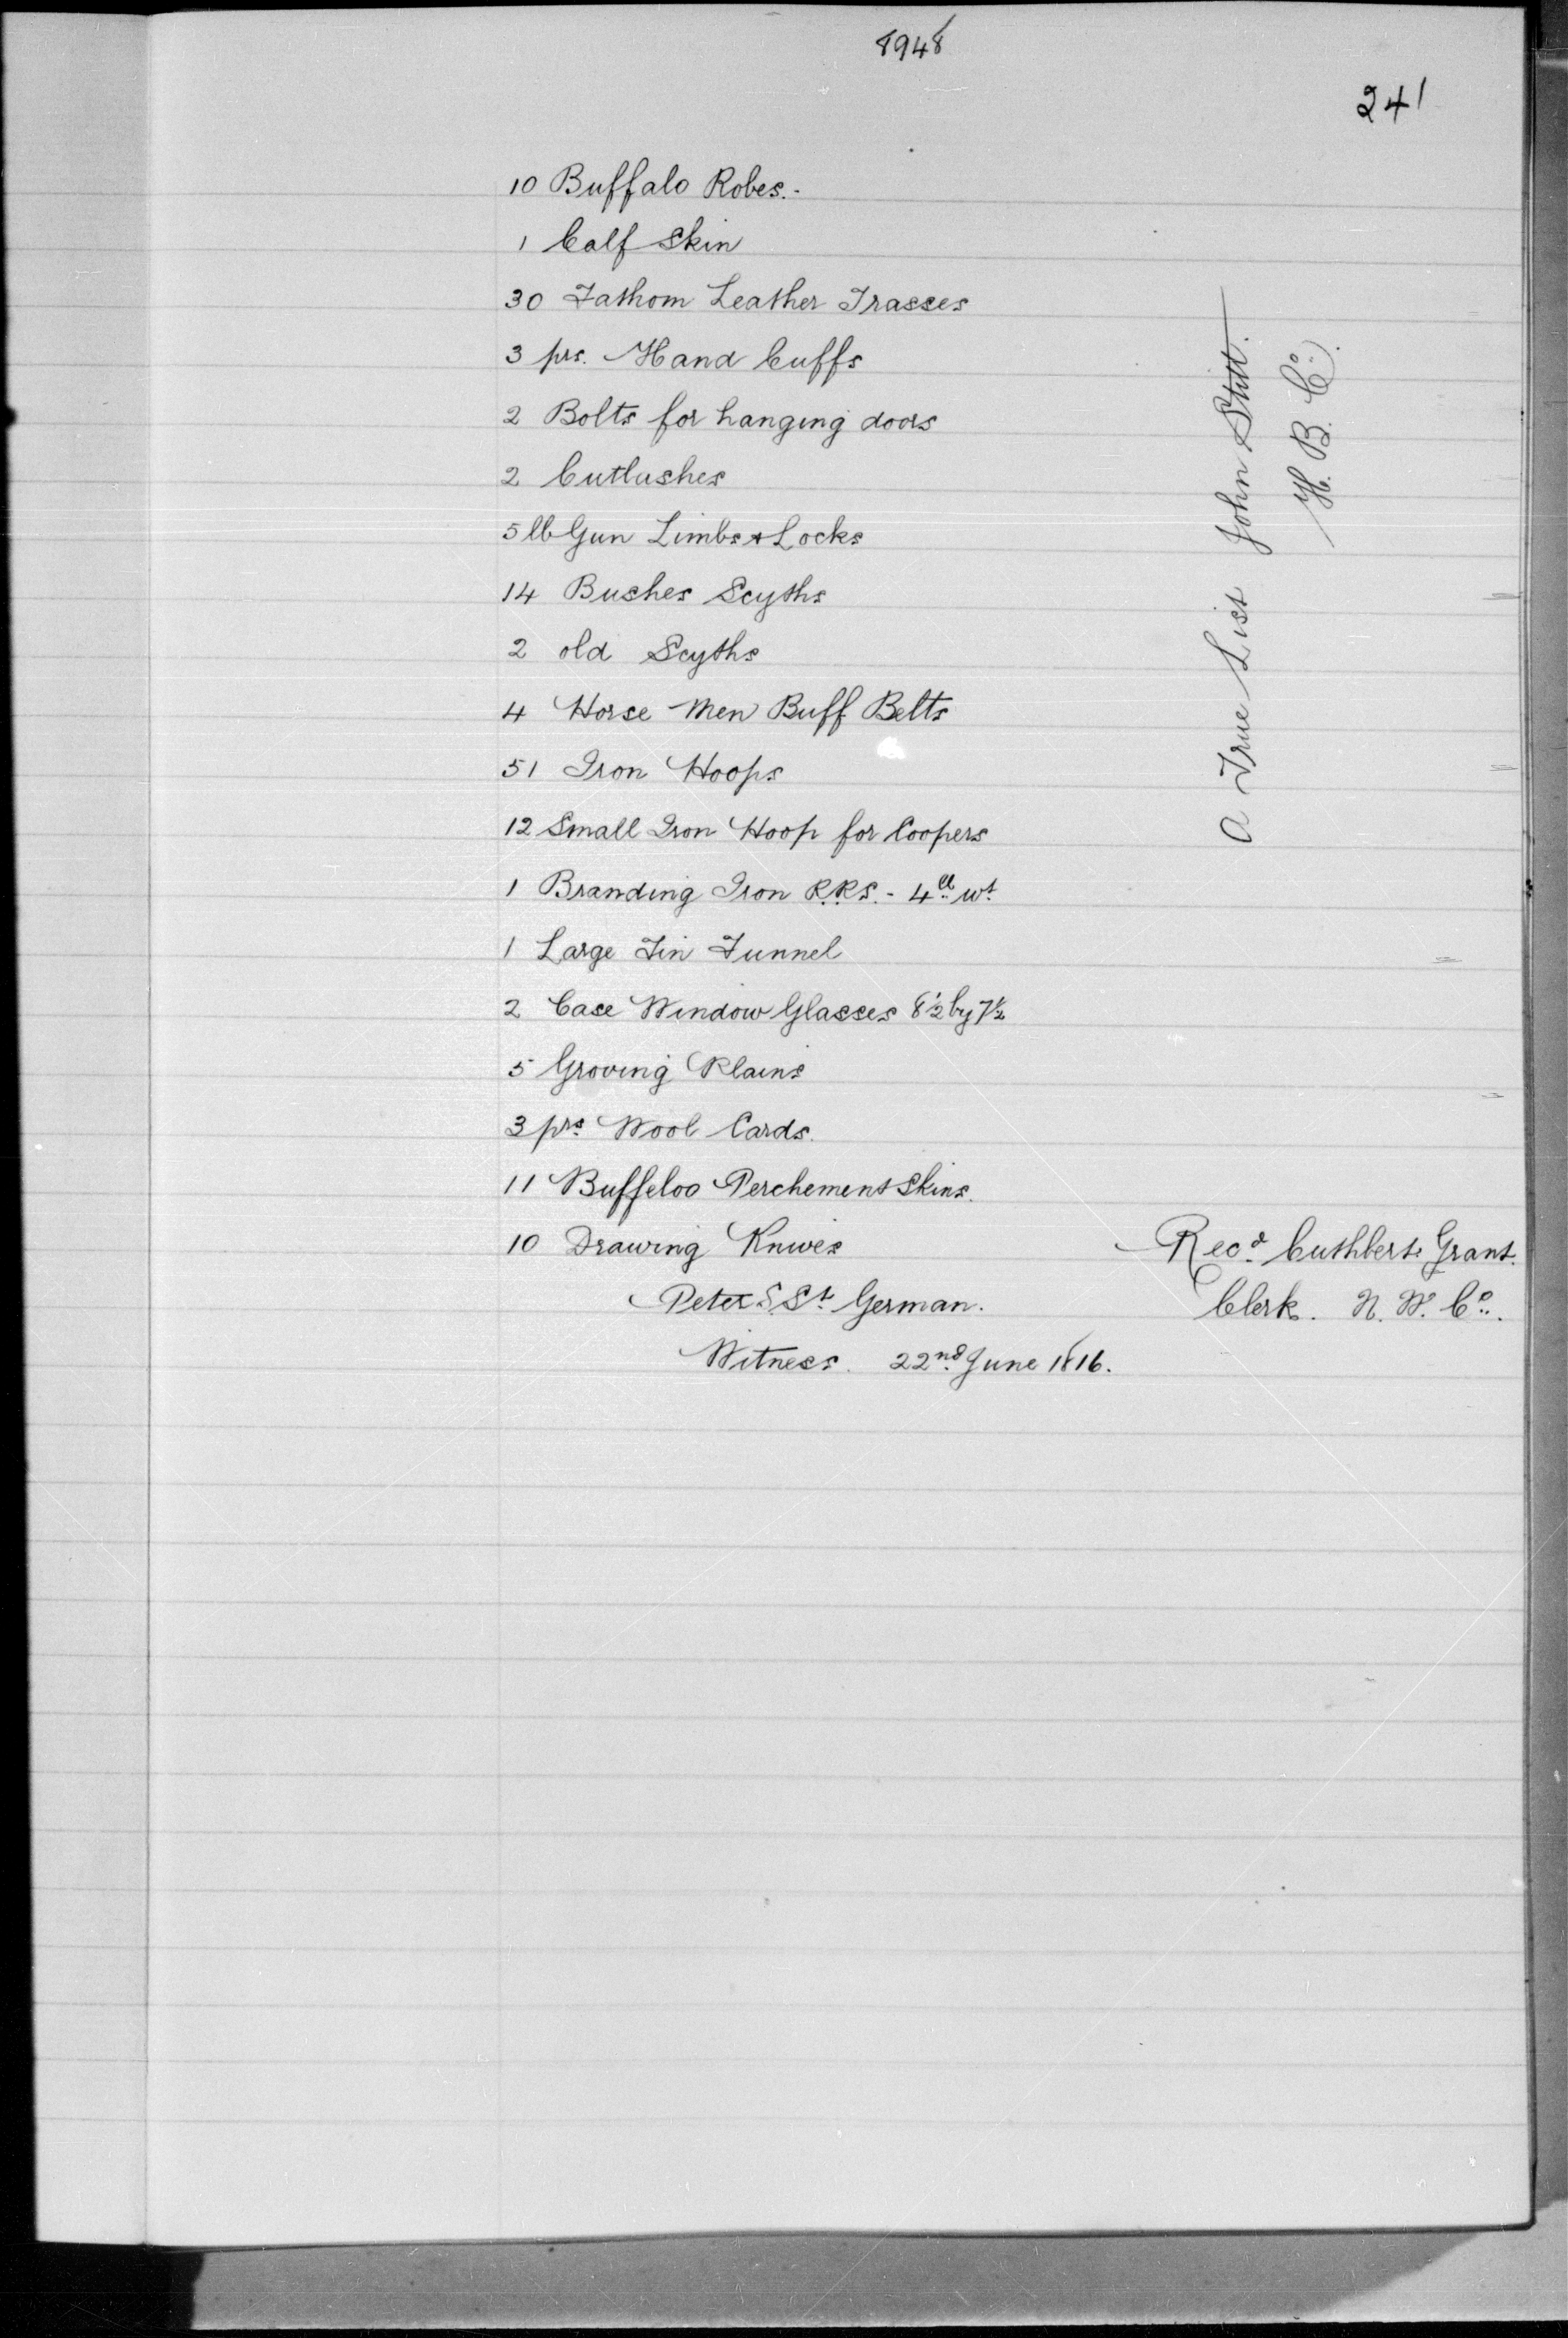 8948
241
10 Buffalo Robes.-
1 Calf Skin
30 Fathom Leather Trasses
3 prs. Hand Cuffs
2 Bolts for hanging doors
2 Cutlashes
5 lb Gun Limbs & Locks
14 Bushes Scyths
2 old Scyths
4 Horse Men Buff Belts
51 Iron Hoops
12 Small Iron Hoop for Coopers
1 Branding Iron R.R.S. - 4 lb wt
1 Large Tin Funnel
2 Case Window Glasses 8½ by 7½
5 Groving Plains
3 prs Wool Cards.
11 Buffeloo Perchement Skins.
10 Drawing Knives
Peter S. St German.
Witness. 22nd June 1816.
Recd Cuthbert Grant.
Clerk. N. W. Co.
A True List John Stitt.
H. B. Co.